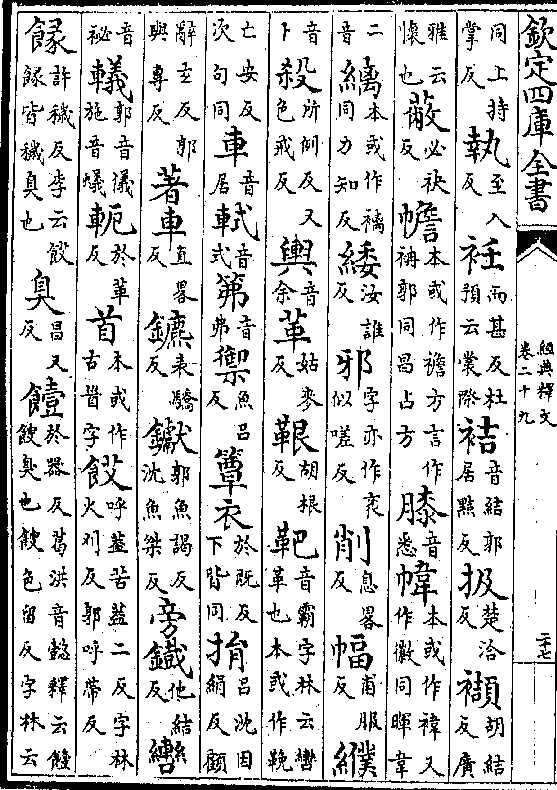 欽定四庫全書
經典釋文
卷二十九
二十七
同上持掌反執至入反袵而甚反杜預云裳際袺音結郭居黠反扱楚洽反襭胡結反廣
雅云懷也蔽必袂反幨本或作襜方言作袡郭同昌占方膝音悉幃本或作褘又作徽同暉韋
二音縭本或作褵同力知反緌汝誰反邪字亦作衺似嗟反削息畧反幅甫服反纀
音卜殺所例反又色戒反輿音余革姑麥反鞎胡根反靶音霸字林云轡革也本或作鞔
亡安反次句同車音居軾音式笰音弗禦魚呂反簟衣於既反下皆同捐呂沈因絹反顧
辭玄反郭與專反著車直畧反鑣表驕反钀郭魚謁反沈魚桀反旁鐵他結反轡
音祕轙郭音儀施音蟻軛於革反首本或作古𩠐字餀呼蓋苦蓋二反字林火刈反郭呼帶反
餯許穢反李云餀餯皆穢臭也臭昌又反饐於器反葛洪音懿釋云饐餿臭也餿色留反字林云